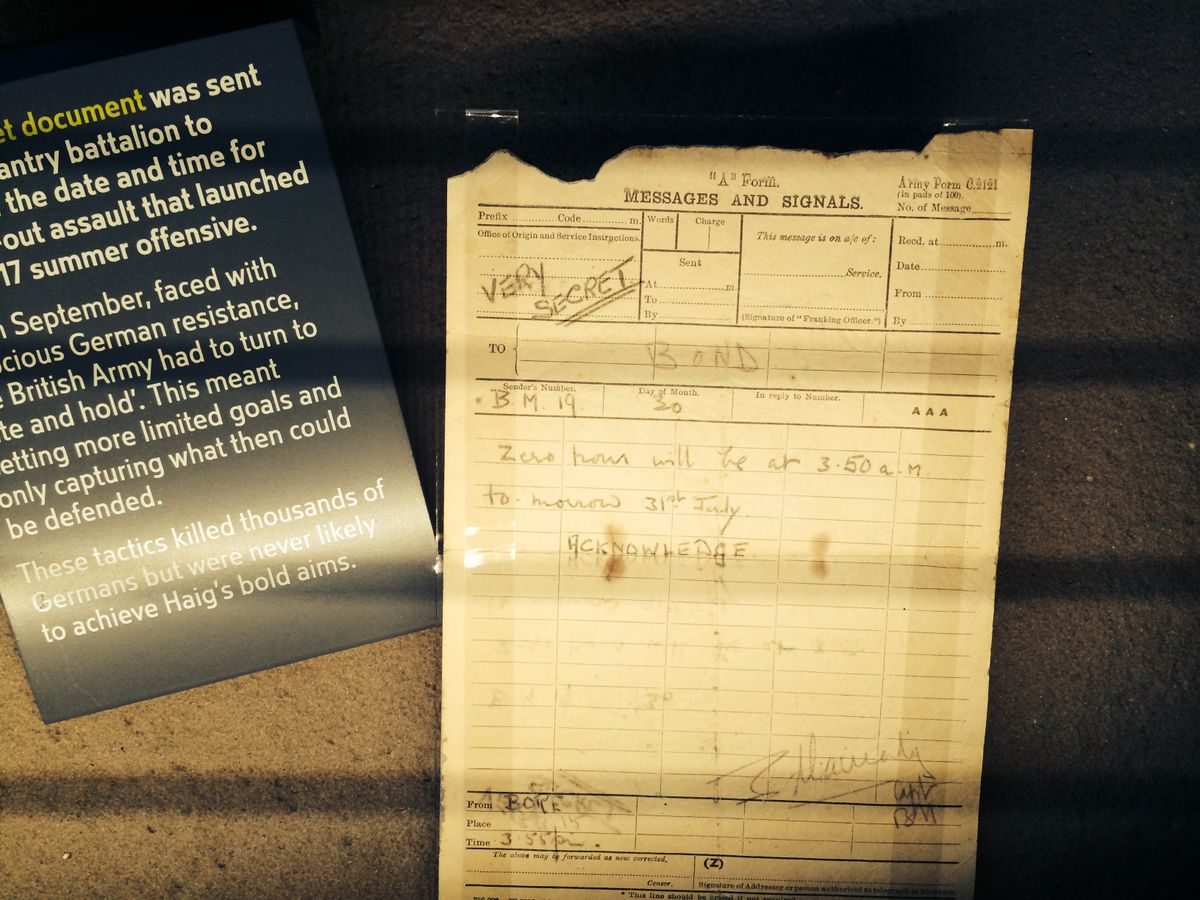 et document was sent
antry battalion to
the date and time for
-out assault that launched
17 summer offensive.
n September, faced with
ocious German resistance,
e British Army had to turn to
te and hold'. This meant
etting more limited goals and
only capturing what then could
be defended.
These tactics killed thousands of
Germans but were never likely
to achieve Haig's bold aims.
"A" Form.
MESSAGES AND SIGNALS.
Army Form C.2121
(in pads of 100).
No. of Message
Prefix Code m.
Office of Origin and Service Instructions.
VERY
SECRET
Words Charge
Sent
At m
To
By
This message is on a/c of:
Service.
(Signature of "Franking Officer.")
Recd. at m.
Date
From
By
TO BOND
Sender's Number. Day of Month. In reply to Number. AAA
* B.M. 19. 30
Zero hour will be at 3.50 a.m.
to-morrow 31st July.
ACKNOWLEDGE
Capt
BM
From
Place
Time 3.55pm.
The above may be forwarded as now corrected. (Z)
Censor. Signature of Addressor or person authorised to telegraph in his name.
* This line should be